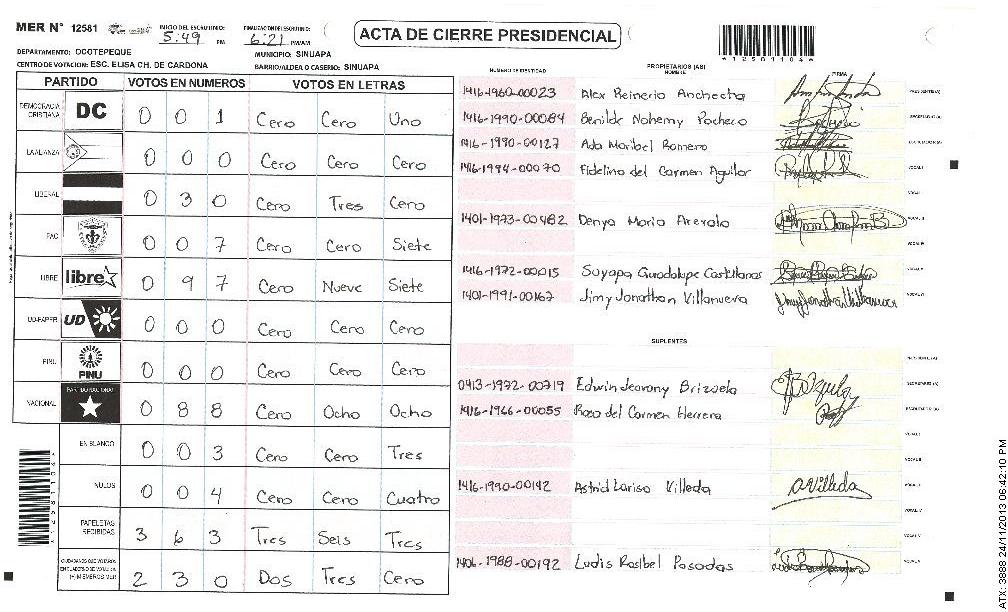 MER N° 12581
INICIO DEL ESCRUTINIO: 5:49 PM
FINALIZACION DEL ESCRUTINIO: 6:21 PM/AM
ACTA DE CIERRE PRESIDENCIAL
*12581104*
DEPARTAMENTO: OCOTEPEQUE
MUNICIPIO: SINUAPA
CENTRO DE VOTACION: ESC. ELISA CH. DE CARDONA
BARRIO/ALDEA O CASERIO: SINUAPA
PARTIDO VOTOS EN NUMEROS VOTOS EN LETRAS
DEMOCRACIA CRISTIANA DC 0 0 1 Cero Cero Uno
LA ALIANZA 0 0 0 Cero Cero Cero
LIBERAL 0 3 0 Cero Tres Cero
PAC 0 0 7 Cero Cero Siete
LIBRE libre 0 9 7 Cero Nueve Siete
UD-FAPER UD 0 0 0 Cero Cero Cero
PINU PINU 0 0 0 Cero Cero Cero
NACIONAL PARTIDO NACIONAL 0 8 8 Cero Ocho Ocho
EN BLANCO 0 0 3 Cero Cero Tres
NULOS 0 0 4 Cero Cero Cuatro
PAPELETAS RECIBIDAS 3 6 3 Tres Seis Tres
CIUDADANOS QUE VOTARON EN CUADERNO DE VOTACION (+) MIEMBROS MER 2 3 0 Dos Tres Cero
NUMERO DE IDENTIDAD PROPIETARIOS (AS) NOMBRE FIRMA
1416-1960-00023 Alex Reinerio Anchecta PRESIDENTE(A)
1416-1990-00084 Benilde Nohemy Pacheco SECRETARIO (A)
1416-1990-00127 Ada Maribel Romero ESCRUTADOR (A)
1416-1994-00070 Fidelina del Carmen Aguilar VOCAL I
VOCAL II
1401-1973-00482 Denya Maria Arevalo VOCAL III
VOCAL IV
1416-1972-00015 Suyapa Guadalupe Castellanos VOCAL V
1401-1991-00167 Jimy Jonathan Villanueva VOCAL VI
SUPLENTES
PRESIDENTE (A)
0413-1972-00719 Edwin Jeovany Brizuela SECRETARIO (A)
1416-1966-00055 Rosa del Carmen Herrera ESCRUTADOR
VOCAL I
VOCAL II
1416-1990-00142 Astrid Larisa Villeda AVilleda VOCAL III
VOCAL IV
VOCAL V
1406-1988-00192 Ludis Rosibel Posadas VOCAL VI
ATX: 3888 24/11/2013 06:42:10 PM